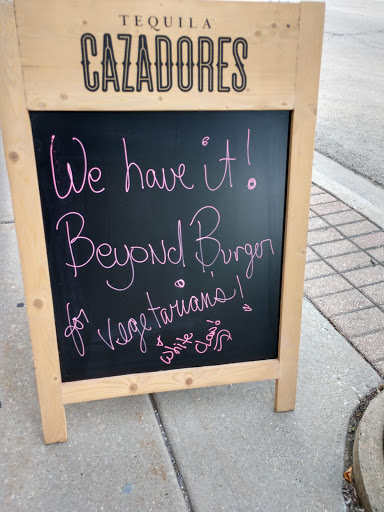 TEQUILA
CAZADORES
We have it!
Beyond Burger
for vegetarians!
& White Claw!